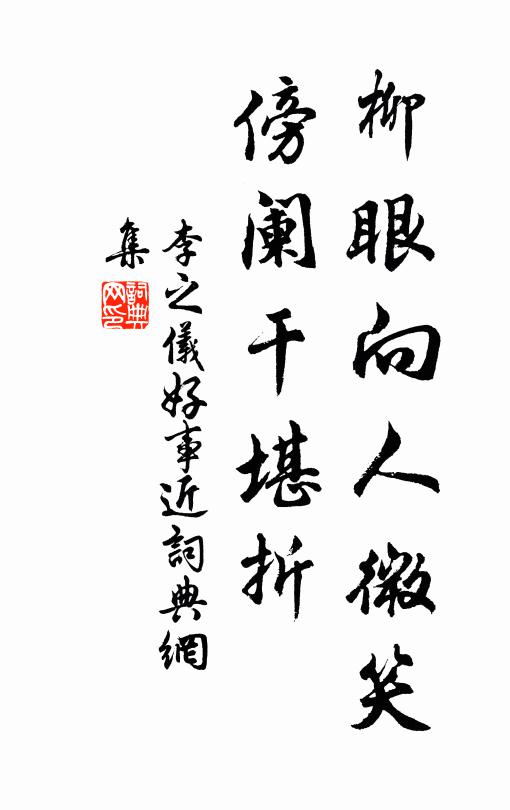 柳眼向人微笑
傍阑干堪折
李之儀好事近詞典網
集
詞典網印